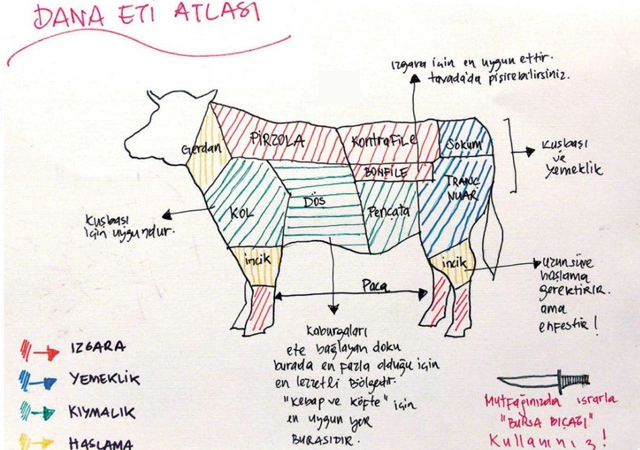 DANA ETİ ATLASI
ızgara için en uygun ettir.
tavada'da pişirebilirsiniz.
Gerdan
PİRZOLA
Kontrafile
Sokum
BONFİLE
TRANÇ
NUAR
KOL
DÖŞ
Pencata
Kuşbaşı
ve
yemeklik
Kuşbaşı
için uygundur.
incik
incik
Paça
uzun süre
haşlama
gerektirir.
ama
enfestir!
Kaburgaları
ete bağlayan doku
burada en fazla olduğu için
en lezzetli bölgedir.
"Kebap ve köfte" için
en uygun yer
BURASIDIR.
IZGARA
YEMEKLİK
KIYMALIK
HAŞLAMA
Mutfağınızda ısrarla
"BURSA BIÇAĞI"
Kullanınız!